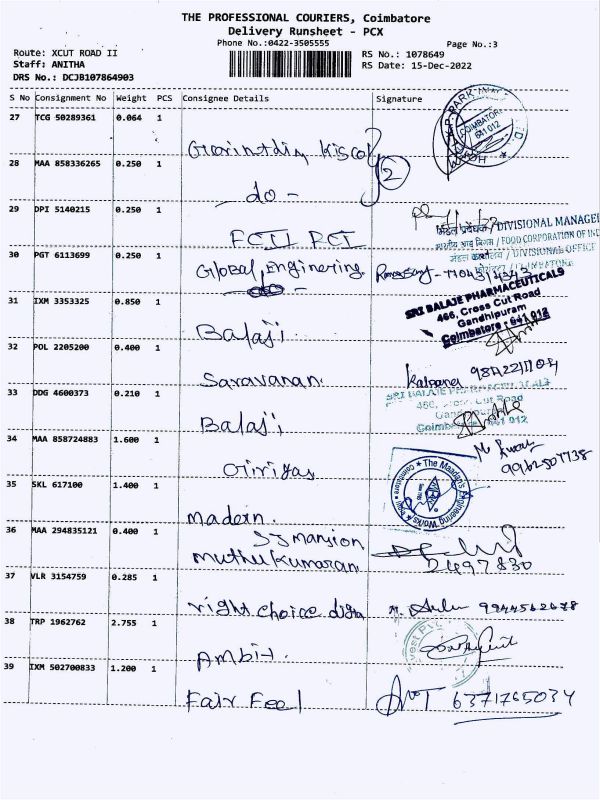 THE PROFESSIONAL COURIERS, Coimbatore
Delivery Runsheet - PCX
Phone No.:0422-3505555
Page No.:3
Route: XCUT ROAD II
RS No.: 1078649
Staff: ANITHA
RS Date: 15-Dec-2022
DRS No.: DCJB107864903
S No Consignment No Weight PCS Consignee Details Signature
27 TCG 50289361 0.064 1
COIMBATORE
641 012
28 MAA 858336265 0.250 1
2
do -
29 DPI 5140215 0.250 1
DIVISIONAL MANAGER
FCII RCI
भारतीय खाद्य निगम / FOOD CORPORATION OF IND
30 PGT 6113699 0.250 1
मंडल कार्यालय / DIVISIONAL OFFICE
Global Enginering
31 IXM 3353325 0.850 1
SRI BALAJE PHARMACEUTICALS
466, Cross Cut Road
Gandhipuram
Coimbatore - 641 012
Balaji
32 POL 2205200 0.400 1
Saravanan
Kalpana
33 DDG 4600373 0.210 1
SRI BALAJE PHARMACEUTICALS
466, Cross Cut Road
641 012
Balaji
34 MAA 858724883 1.600 1
Girigas
9962507738
35 SKL 617100 1.400 1
The Maadern Engineering Works
Coimbatore
madern
36 MAA 294835121 0.400 1
SS mansion
muthu kumaran
2497830
37 VLR 3154759 0.285 1
right choice
9944562678
38 TRP 1962762 2.755 1
Ambit.
39 IXM 502700833 1.200 1
Fair Feel
6371765034